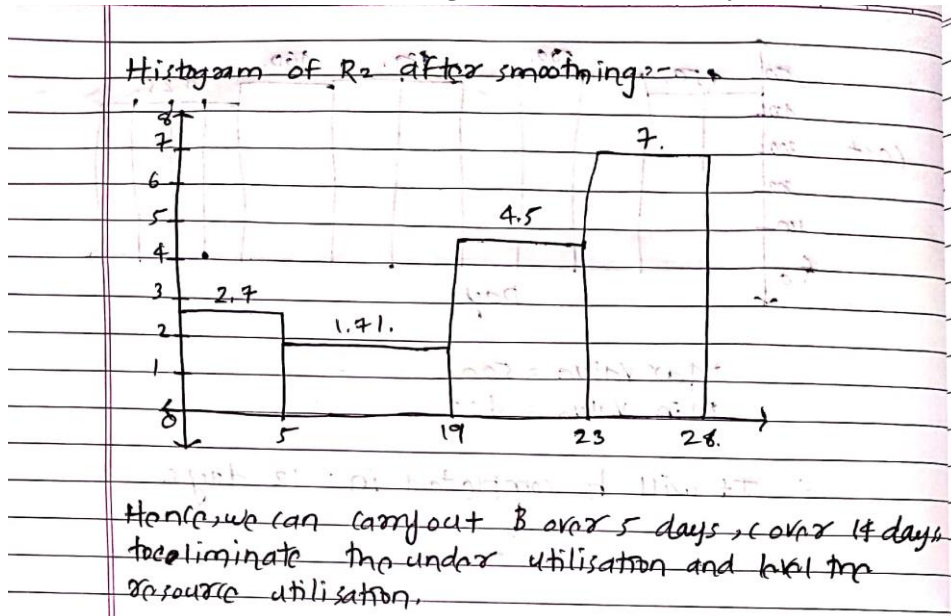 Histogram of R2 after smoothing:-
8
7
7.
6
5
4.5
4
3
2.7
2
1.71.
1
0
5
19
23
28.
Hence, we can carryout B over 5 days, C over 14 days
to eliminate the under utilisation and level the
resource utilisation.